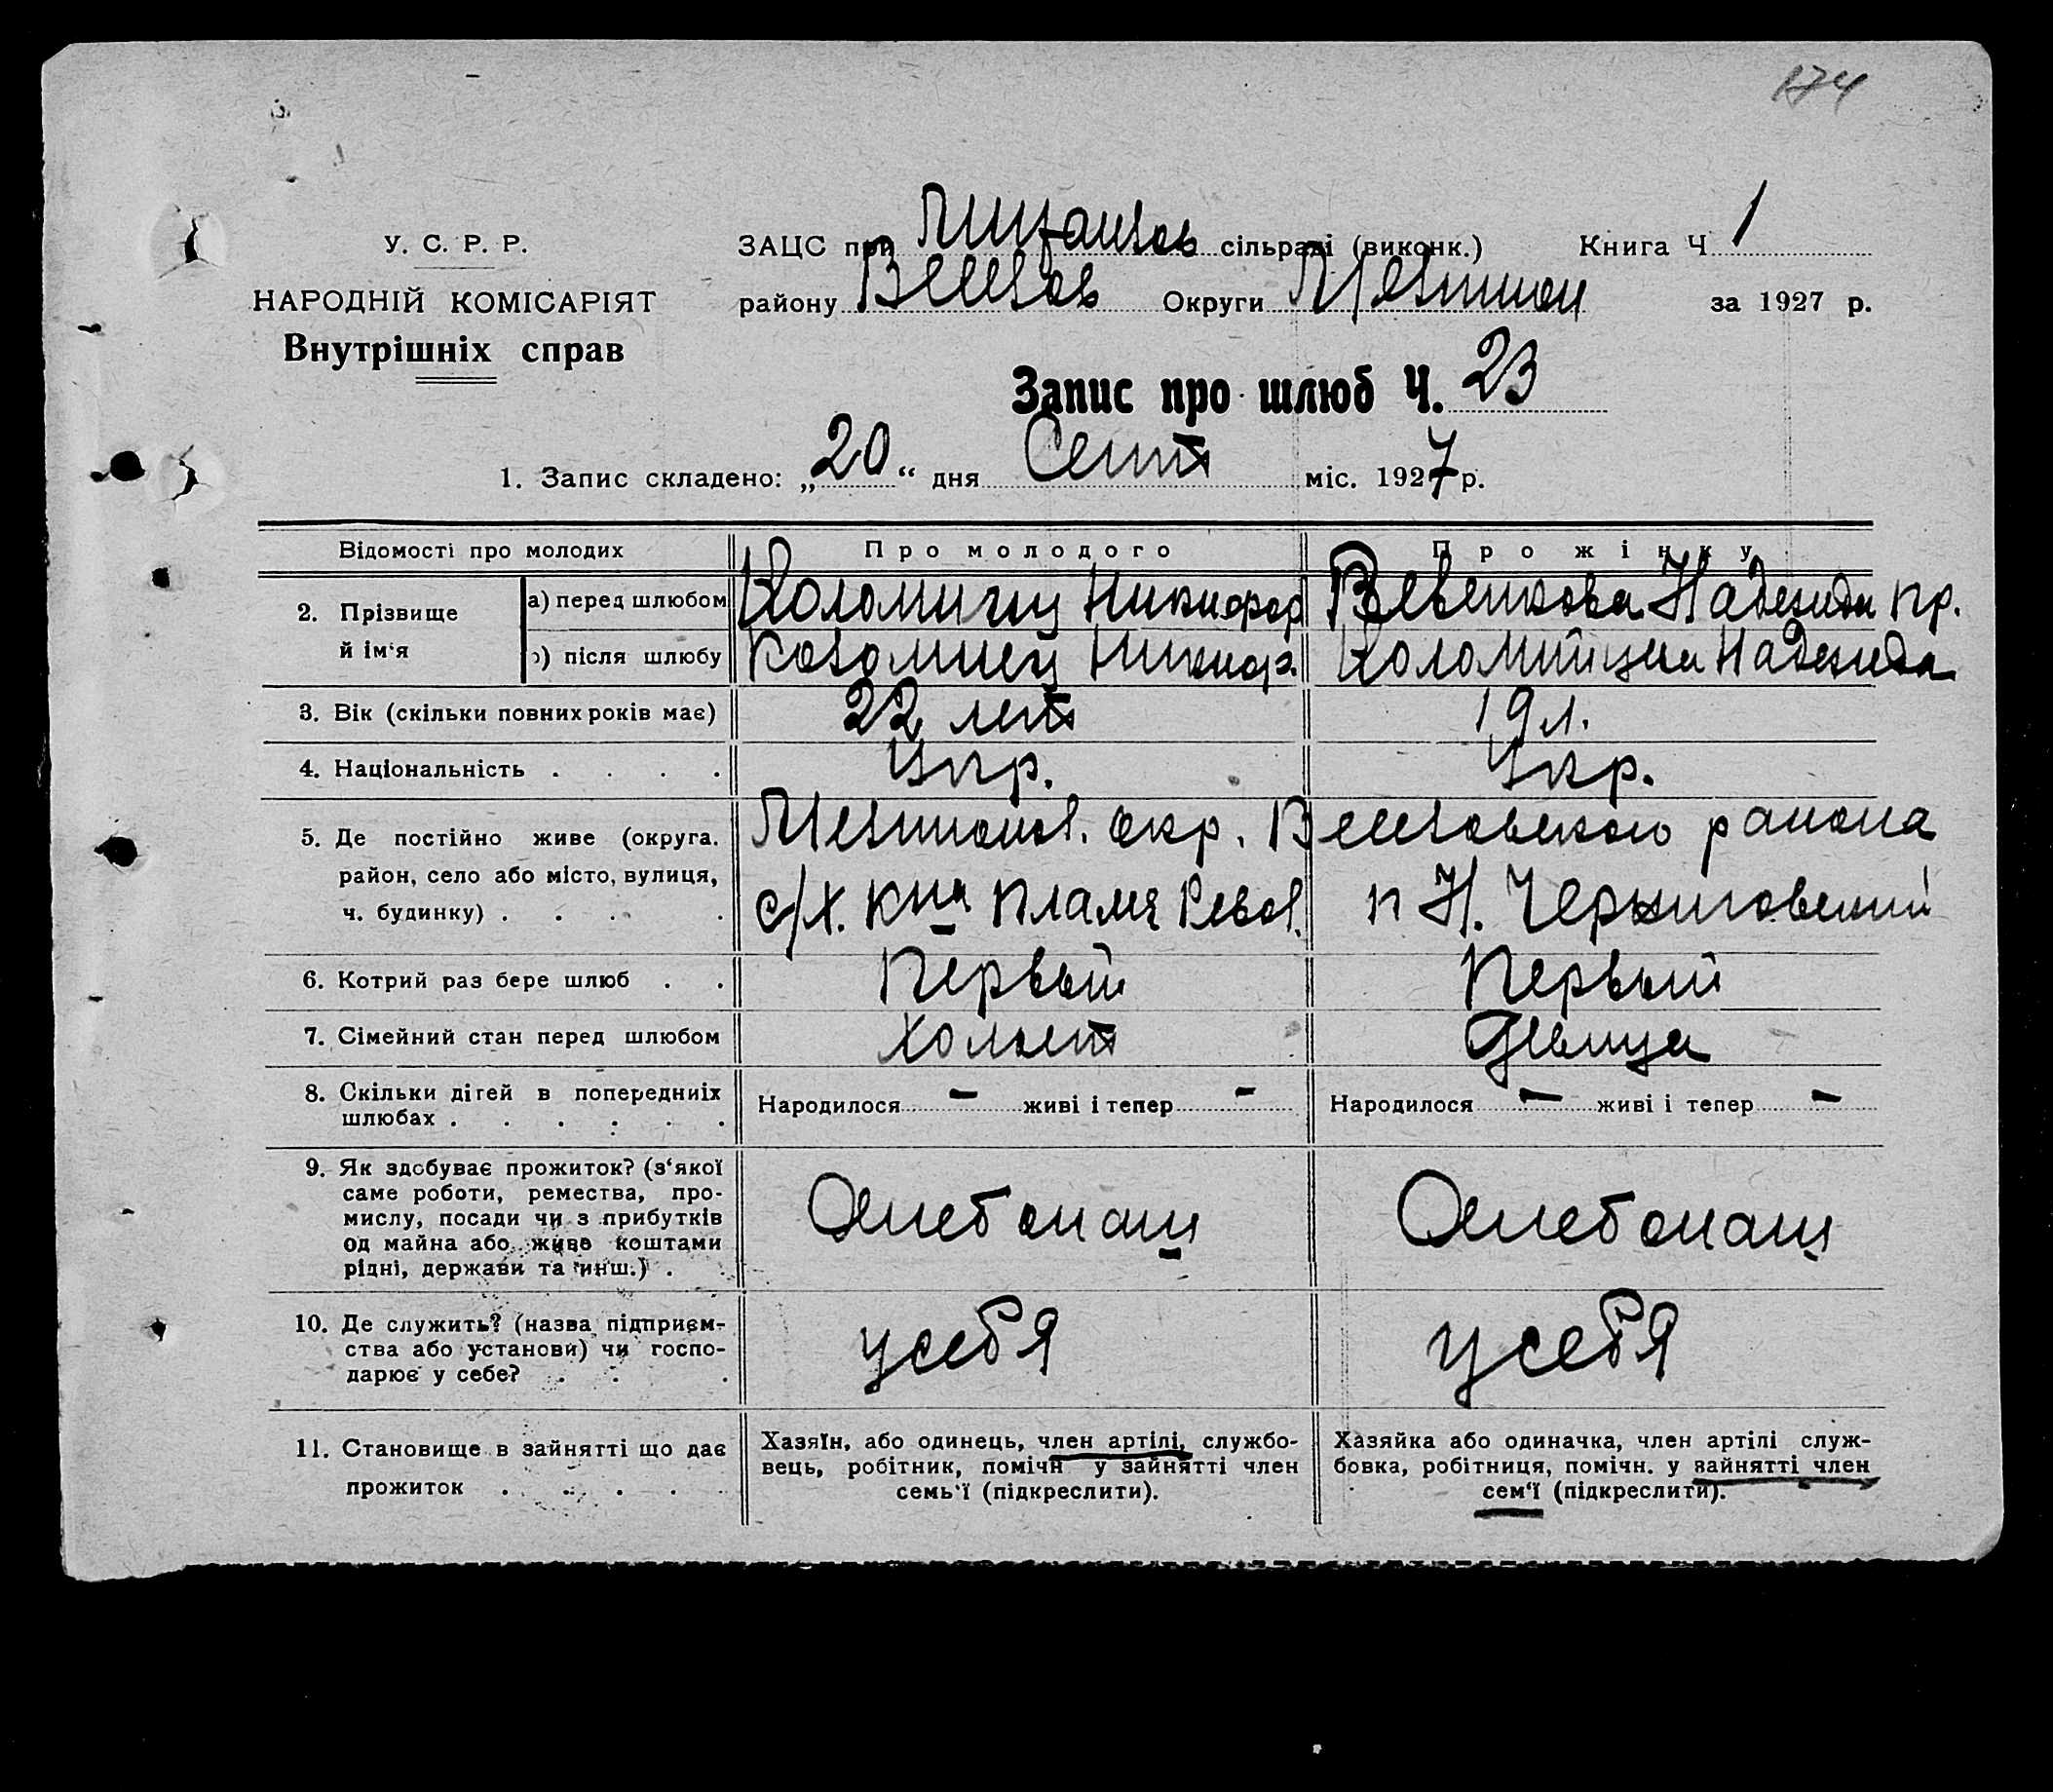 174
У. С. Р. Р.
НАРОДНІЙ КОМІСАРІЯТ
Внутрішніх справ
ЗАЦС при сільраді (виконк.) Книга Ч. 1
району Веселов Округи Мелитоп за 1927 р.
Запис про шлюб Ч. 23
1. Запис складено: „20“ дня Сент міс. 1927 р.
Відомості про молодих Про молодого Про жінку
2. Прізвище й ім‘я
а) перед шлюбом Никифор Надежда пр.
б) після шлюбу Коломиец Никиф. Надежда
3. Вік (скільки повних років має) 22 лет 19 л.
4. Національність . . . . Укр. Укр.
5. Де постійно живе (округа. район, село або місто, вулиця, ч. будинку) . . . .
Мелитопол. окр. Веселовского района
с/х. Кна Пламя Револ. п Н. Черниговский
6. Котрий раз бере шлюб . . Первый Первый
7. Сімейний стан перед шлюбом Холост Девица
8. Скільки дітей в попередниіх шлюбах . . . . . .
Народилося - живі і тепер - Народилося - живі і тепер -
9. Як здобуває прожиток? (з‘якої
саме роботи, ремества, про-
мислу, посади чи з прибутків
од майна або живе коштами
рідні, держави та инш.) .
Хлебопаш Хлебопаш
10. Де служить? (назва підприєм-
ства або установи) чи госпо-
дарює у себе? . . .
у себя у себя
11. Становище в зайнятті що дає
прожиток . . . . .
Хазяїн, або одинець, член артілі, службо-
вець, робітник, помічн у зайнятті член
семь‘ї (підкреслити).
Хазяйка або одиначка, член артілі служ-
бовка, робітниця, помічн. у зайнятті член
сем‘ї (підкреслити).